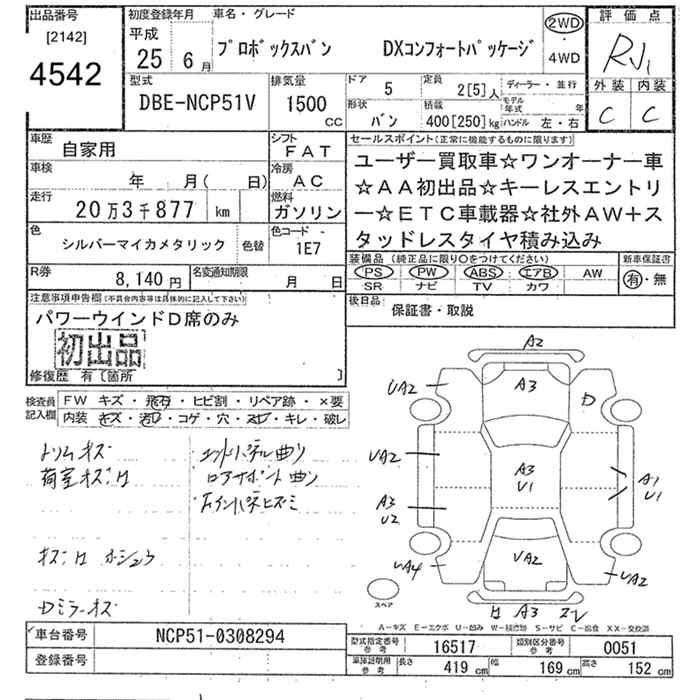 出品番号
[2142]
4542
初度登録年月
平成
25 6月
車名・グレード
プロボックスバン DXコンフォートパッケージ
2WD
4WD
評価点
外装 内装
C C
型式
DBE-NCP51V
排気量
1500
CC
ドア 5
定員 2[5]人
ディーラー・並行
形状 バン
積載 400[250]kg
モデル年式 年
ハンドル 左・右
車歴 自家用
シフト FAT
車検 年 月( 日)
冷房 AC
走行 20万3千877 km
燃料 ガソリン
色 シルバーマイカメタリック 色替
色コード 1E7
R券 8,140円
名変通知期限 月 日
セールスポイント(正常に機能するものに限ります)
ユーザー買取車☆ワンオーナー車
☆AA初出品☆キーレスエントリ
ー☆ETC車載器☆社外AW+ス
タッドレスタイヤ積み込み
装備品(純正品に限り○をつけてください)
新車保証書
PS PW ABS エアB AW
有・無
SR ナビ TV カワ
後日品 保証書・取説
注意事項申告欄(不具合内容等は具体的に記入して下さい)
パワーウインドD席のみ
初出品
修復歴 有〔箇所 〕
検査員記入欄
FW キズ・飛石・ヒビ割・リペア跡・×要
内装 キズ・汚レ・コゲ・穴・スレ・キレ・破レ
トリムキズ
荷室キズ凹
キズ凹 ホシュウ
Dミラーキズ
コアサポート曲り
A2
A3
UA2
D
UA2
A3
U1
A1
U1
A3
U2
UA4
UA2
UA2
スペア
凹 A3
A-キズ E-エクボ U-凹み W-補修跡 S-サビ C-腐食 XX-交換済
車台番号 NCP51-0308294
登録番号
型式指定番号参考 16517
類別区分番号参考 0051
車庫証明用参考 長さ 419 cm 幅 169 cm 高さ 152 cm